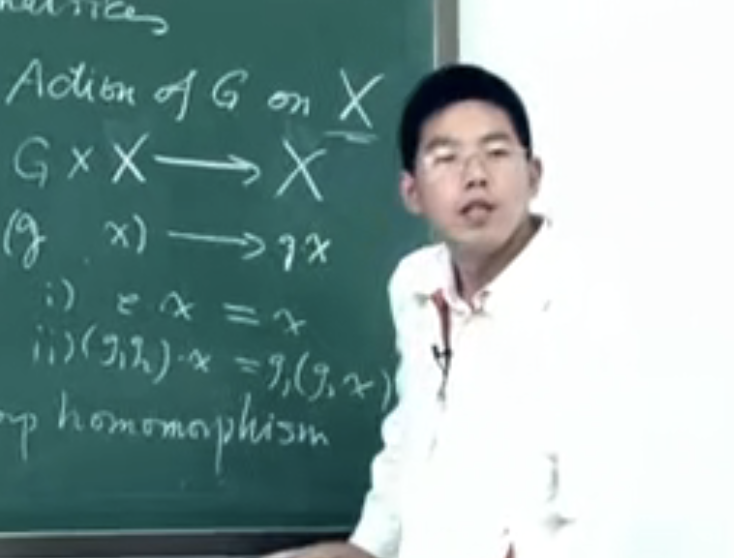 Action of G on X
G × X ⟶ X
(g x) ⟶ gx
i) e·x = x
ii) (g₁g₂)·x = g₁(g₂x)
homomorphism